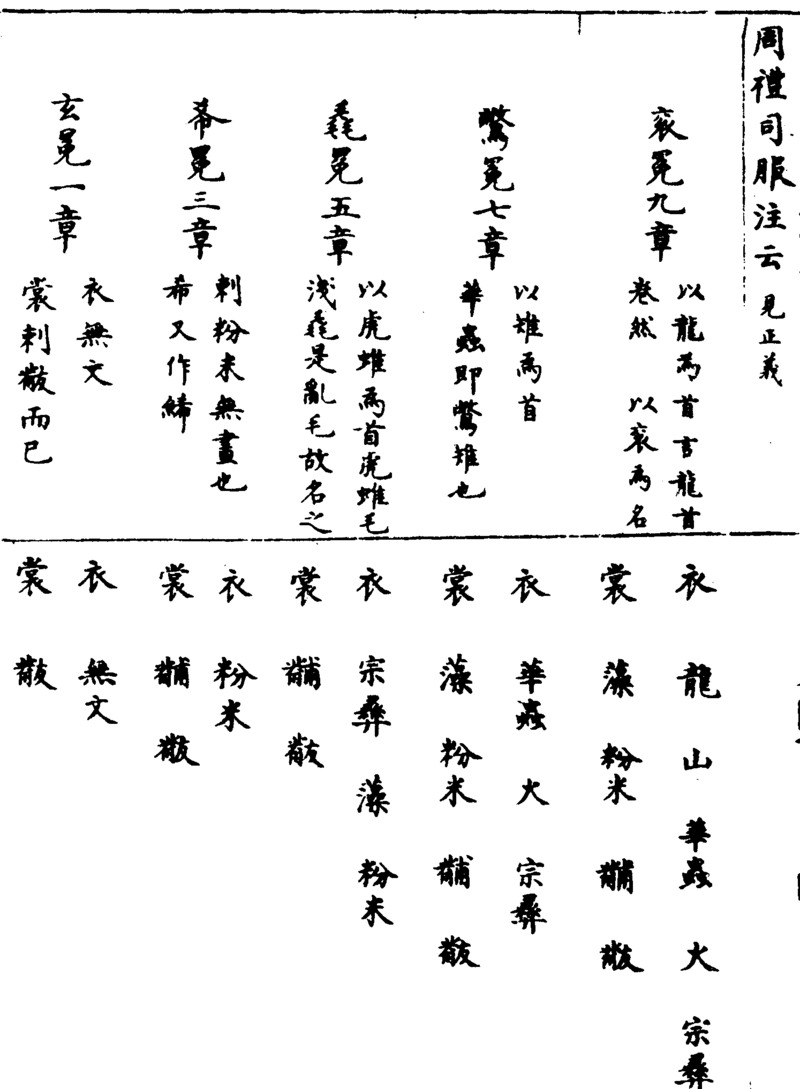 周禮司服注云 見正義
袞冕九章
以龍為首言龍首
卷然 以袞為名
鷩冕七章
以雉為首
華蟲即鷩雉也
毳冕五章
以虎蜼為首虎蜼毛
淺毳是亂毛故名之
希冕三章
刺粉米無畫也
希又作絺
玄冕一章
衣無文
裳刺黻而已
衣 龍 山 華蟲 火 宗彝
裳 藻 粉米 黼 黻
衣 華蟲 火 宗彝
裳 藻 粉米 黼 黻
衣 宗彝 藻 粉米
裳 黼 黻
衣 粉米
裳 黼 黻
衣 無文
裳 黻